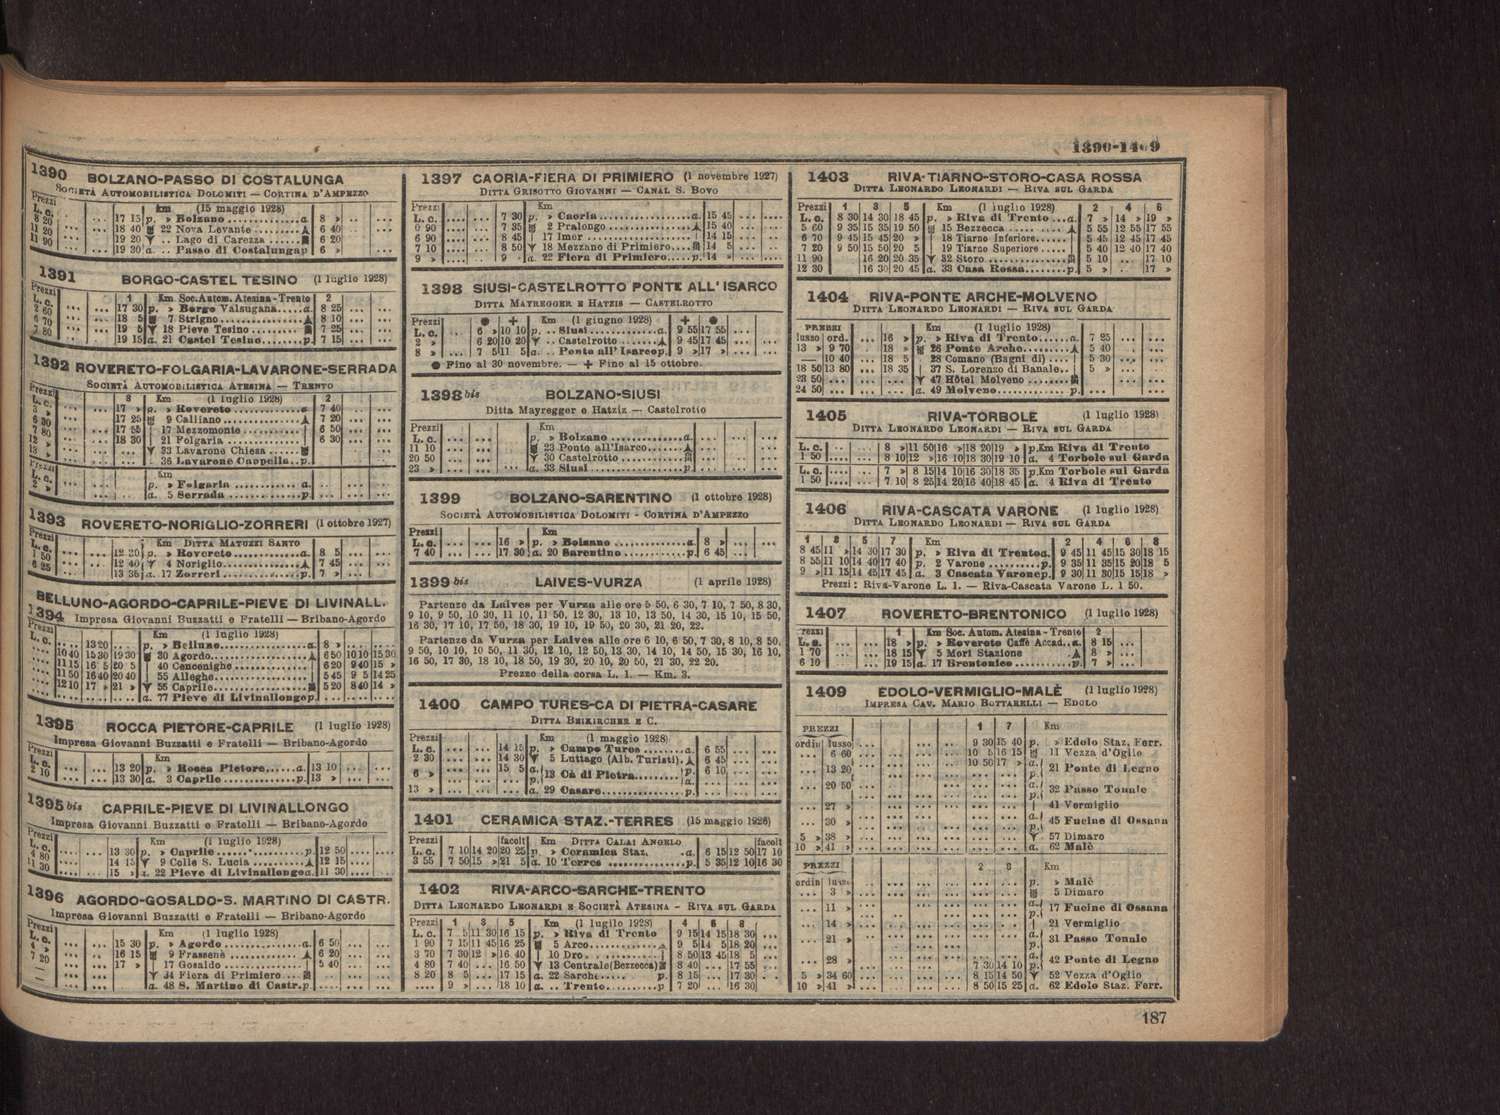 1390-1409
1390 BOLZANO-PASSO DI COSTALUNGA
SOCIETÀ AUTOMOBILISTICA DOLOMITI — CORTINA D'AMPEZZO
Prezzi km (15 maggio 1928)
L. c. 17 15 p. » Bolzano a. 8 »
8 20 18 40 22 Nova Levante 6 40
11 20 19 20 .. Lago di Carezza 6 20
11 90 19 30 a. .. Passo di Costalunga p 6 »
1391 BORGO-CASTEL TESINO (1 luglio 1928)
Prezzi 1 Km Soc. Autom. Atesina-Trento 2
L. c. 17 30 p. » Borgo Valsugana a. 8 25
2 60 18 5 7 Strigno 8 10
6 70 19 5 18 Pieve Tesino 7 25
7 80 19 15 a. 21 Castel Tesino p. 7 15
1392 ROVERETO-FOLGARIA-LAVARONE-SERRADA
SOCIETÀ AUTOMOBILISTICA ATESINA — TRENTO
Prezzi 3 Km (1 luglio 1928) 2
L. c. 17 » p. » Rovereto a 7 40
3 » 17 25 9 Calliano 7 20
6 30 17 55 17 Mezzomonte 6 50
7 80 18 30 21 Folgaria 6 30
12 » 33 Lavarone Chiesa
13 » 36 Lavarone Cappella p.
Prezzi Km
L. c. p. » Folgaria a.
2 » a. 5 Serrada p.
1393 ROVERETO-NORIGLIO-ZORRERI (1 ottobre 1927)
Prezzi Km DITTA MATUZZI SANTO
L. c. 12 20 p. » Rovereto a. 8 5
1 50 12 40 4 Noriglio 7 45
6 25 13 35 a. 17 Zorreri p. 7 »
1394 BELLUNO-AGORDO-CAPRILE-PIEVE DI LIVINALL.
Impresa Giovanni Buzzatti e Fratelli — Bribano-Agordo
Prezzi Km (1 luglio 1928)
L. c. 13 20 p. » Belluno a. 8 »
10 40 15 30 19 30 30 Agordo 6 50 10 10 15 30
11 15 16 5 20 5 40 Cencenighe 6 20 9 40 15 »
11 50 16 40 20 40 55 Alleghe 5 45 9 5 14 25
12 10 17 » 21 » 56 Caprile 5 20 8 40 14 »
a. 77 Pieve di Livinallongo p.
1395 ROCCA PIETORE-CAPRILE (1 luglio 1928)
Impresa Giovanni Buzzatti e Fratelli — Bribano-Agordo
Prezzi Km
L. c. 13 20 p. » Rocca Pietore a. 13 10
2 10 13 30 a. 3 Caprile p. 13 »
1395 bis CAPRILE-PIEVE DI LIVINALLONGO
Impresa Giovanni Buzzatti e Fratelli — Bribano-Agordo
Prezzi Km (1 luglio 1928)
L. c. 13 30 p. » Caprile p. 12 50
4 80 14 15 9 Colle S. Lucia 12 15
11 30 15 » a. 22 Pieve di Livinallongo a. 11 30
1396 AGORDO-GOSALDO-S. MARTINO DI CASTR.
Impresa Giovanni Buzzatti e Fratelli — Bribano-Agordo
Prezzi Km (1 luglio 1928)
L. c. 15 30 p. » Agordo a. 6 50
4 » 16 15 9 Frassenè 6 20
7 20 17 » 17 Gosaldo 5 40
34 Fiera di Primiero
a. 48 S. Martino di Castr. p.
1397 CAORIA-FIERA DI PRIMIERO (1 novembre 1927)
DITTA GRISOTTO GIOVANNI — CANAL S. BOVO
Prezzi Km
L. c. 7 30 p. » Caoria a. 15 45
0 90 7 35 2 Pralongo 15 40
6 90 8 45 17 Imer 14 15
7 10 8 50 18 Mezzano di Primiero 14 5
9 » 9 » a. 22 Fiera di Primiero p. 14 »
1398 SIUSI-CASTELROTTO PONTE ALL' ISARCO
DITTA MAYREGGER E HATZIS — CASTELROTTO
Prezzi ● + Km (1 giugno 1928) + ●
L. c. 6 » 10 10 p. .. Siusi a. 9 55 17 55
2 » 6 20 10 20 .. Castelrotto 9 45 17 45
8 » 7 5 11 5 a. .. Ponte all'Isarco p. 9 » 17 »
● Fino al 30 novembre. — + Fino al 15 ottobre.
1398 bis BOLZANO-SIUSI
Ditta Mayregger e Hatziz — Castelrotto
Prezzi Km
L. c. p. » Bolzano a.
11 10 23 Ponte all'Isarco
20 50 30 Castelrotto
23 » a. 33 Siusi p
1399 BOLZANO-SARENTINO (1 ottobre 1928)
SOCIETÀ AUTOMOBILISTICA DOLOMITI - CORTINA D'AMPEZZO
Prezzi Km
L. c. 16 » p. » Bolzano a. 8 »
7 40 17 30 a. 20 Sarentino p. 6 45
1399 bis LAIVES-VURZA (1 aprile 1928)
Partenze da Laives per Vurza alle ore 5 50, 6 30, 7 10, 7 50, 8 30,
9 10, 9 50, 10 30, 11 10, 11 50, 12 30, 13 10, 13 50, 14 30, 15 10, 15 50,
16 30, 17 10, 17 50, 18 30, 19 10, 19 50, 20 30, 21 20, 22.
Partenze da Vurza per Laives alle ore 6 10, 6 50, 7 30, 8 10, 8 50,
9 50, 10 10, 10 50, 11 30, 12 10, 12 50, 13 30, 14 10, 14 50, 15 30, 16 10,
16 50, 17 30, 18 10, 18 50, 19 30, 20 10, 20 50, 21 30, 22 20.
Prezzo della corsa L. 1. — Km. 3.
1400 CAMPO TURES-CA DI PIETRA-CASARE
DITTA BEIKIRCHER E C.
Prezzi Km (1 maggio 1928)
L. c. 14 15 p. » Campo Tures a. 6 55
2 30 14 30 5 Luttago (Alb. Turisti) 6 45
6 » 15 5 a. p. 13 Cà di Pietra p. a. 6 10
13 » a. 29 Casare p.
1401 CERAMICA STAZ.-TERRES (15 maggio 1926)
Prezzi facolt Km DITTA CALAI ANGELO facolt
L. c. 7 10 14 20 20 25 p. » Ceramica Staz. a. 6 15 12 50 17 10
3 55 7 50 15 » 21 5 a. 10 Terres p. 5 35 12 10 16 30
1402 RIVA-ARCO-SARCHE-TRENTO
DITTA LEONARDO LEONARDI E SOCIETÀ ATESINA - RIVA SUL GARDA
Prezzi 1 3 5 Km (1 luglio 1928) 4 6 8
L. c. 7 5 11 30 16 15 p. » Riva di Trento 9 15 14 15 18 30
1 90 7 15 11 45 16 25 5 Arco 9 5 14 5 18 20
3 70 7 30 12 » 16 40 10 Dro 8 50 13 45 18 5
4 80 7 40 16 50 13 Centrale (Bezzecca) 8 40 17 55
8 20 8 5 17 15 a. 22 Sarche p. 8 15 17 30
9 » 18 10 a. .. Trento p 7 20 16 30
1403 RIVA-TIARNO-STORO-CASA ROSSA
DITTA LEONARDO LEONARDI — RIVA SUL GARDA
Prezzi 1 3 5 Km (1 luglio 1928) 2 4 6
L. c. 8 30 14 30 18 45 p. » Riva di Trento a. 7 » 14 » 19 »
5 60 9 35 15 35 19 50 15 Bezzecca 5 55 12 55 17 55
6 70 9 45 15 45 20 » 18 Tiarno Inferiore 5 45 12 45 17 45
7 20 9 50 15 50 20 5 19 Tiarno Superiore 5 40 12 40 17 40
11 90 16 20 20 35 32 Storo 5 10 17 10
12 30 16 30 20 45 a. 33 Casa Rossa p. 5 » 17 »
1404 RIVA-PONTE ARCHE-MOLVENO
DITTA LEONARDO LEONARDI — RIVA SUL GARDA
PREZZI Km (1 luglio 1928)
lusso ord. 16 » p. » Riva di Trento a. 7 25
13 » 9 70 18 » 26 Ponte Arche 5 40
— 10 40 18 5 28 Comano (Bagni di) 5 30
18 50 13 80 18 35 37 S. Lorenzo di Banale 5 »
23 50 47 Hôtel Molveno
24 50 a. 49 Molveno p.
1405 RIVA-TORBOLE (1 luglio 1928)
DITTA LEONARDO LEONARDI — RIVA SUL GARDA
L. c. 8 » 11 50 16 » 18 20 19 » p. Km Riva di Trento
1 50 8 10 12 » 16 10 18 30 19 10 a. 4 Torbole sul Garda
L. c. 7 » 8 15 14 10 16 30 18 35 p. Km Torbole sul Garda
1 50 7 10 8 25 14 20 16 40 18 45 a. 4 Riva di Trento
1406 RIVA-CASCATA VARONE (1 luglio 1928)
DITTA LEONARDO LEONARDI — RIVA SUL GARDA
1 3 5 7 Km 2 4 6 8
8 45 11 » 14 30 17 30 p. » Riva di Trento a. 9 45 11 45 15 30 18 15
8 55 11 10 14 40 17 40 p. 2 Varone p. 9 35 11 35 15 20 18 5
9 » 11 15 14 45 17 45 a. 3 Cascata Varone p. 9 30 11 30 15 15 18 »
Prezzi: Riva-Varone L. 1. — Riva-Cascata Varone L. 1 50.
1407 ROVERETO-BRENTONICO (1 luglio 1928)
Prezzi 1 Km Soc. Autom. Atesina - Trento 2
L. c. 18 » p. » Rovereto Caffè Accad. a. 8 15
1 70 18 15 5 Mori Stazione 8 »
6 10 19 15 a. 17 Brentonico p. 7 »
1409 EDOLO-VERMIGLIO-MALÈ (1 luglio 1928)
IMPRESA CAV. MARIO BOTTARELLI — EDOLO
PREZZI 1 7 Km
ordin lusso 9 30 15 40 p. » Edolo Staz. Ferr.
6 60 10 5 16 15 11 Vezza d'Oglio
13 20 10 50 17 » a. p. 21 Ponte di Legno
20 50 a. p. 32 Passo Tonale
27 » 41 Vermiglio
30 » a. p. 45 Fucine di Ossana
5 » 38 » 57 Dimaro
10 » 41 » a. 62 Malè
PREZZI 2 8 Km
ordin lusso p. » Malè
3 » 5 Dimaro
11 » a. p. 17 Fucine di Ossana
14 » 21 Vermiglio
21 » a. p. 31 Passo Tonale
28 » a. p. 42 Ponte di Legno
7 30 14 10
5 » 34 60 8 15 14 50 52 Vezza d'Oglio
10 » 41 » 8 50 15 25 a. 62 Edolo Staz. Ferr.
187